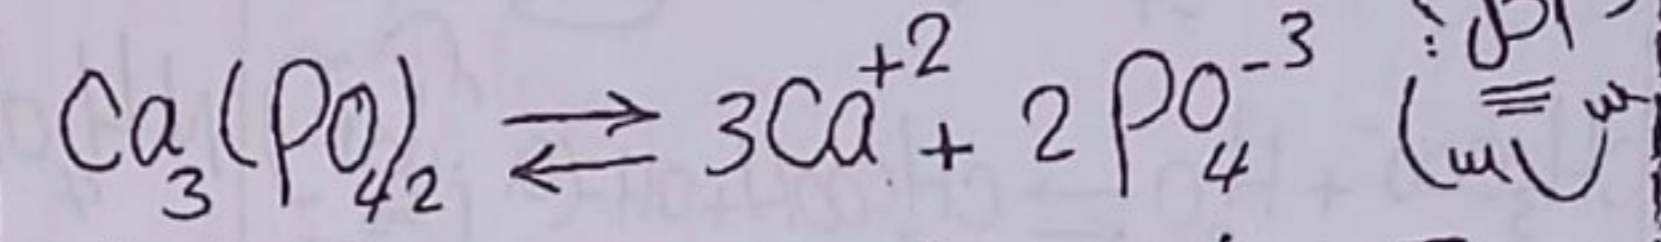 Ca₃(PO₄)₂ ⇌ 3Ca⁺² + 2PO₄⁻³